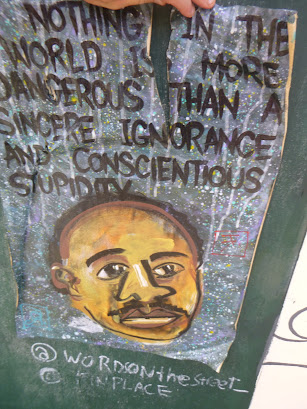 NOTHING IN THE
WORLD IS MORE
DANGEROUS THAN A
SINCERE IGNORANCE
AND CONSCIENTIOUS
STUPIDITY
@WORDSONtheStreet_
@ PLACE